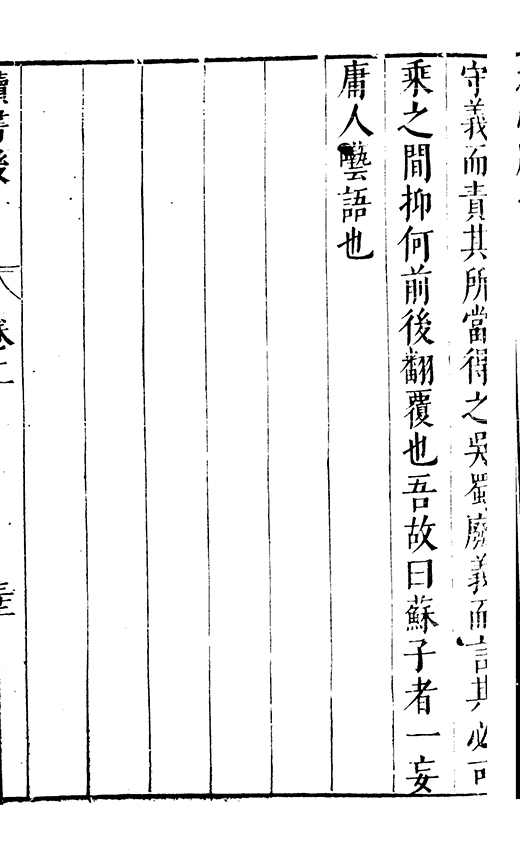 守義而責其所當得之吳蜀廢義而言其必可
乘之間抑何前後翻覆也吾故曰蘇子者一妄
庸人囈語也
讀書後
卷二